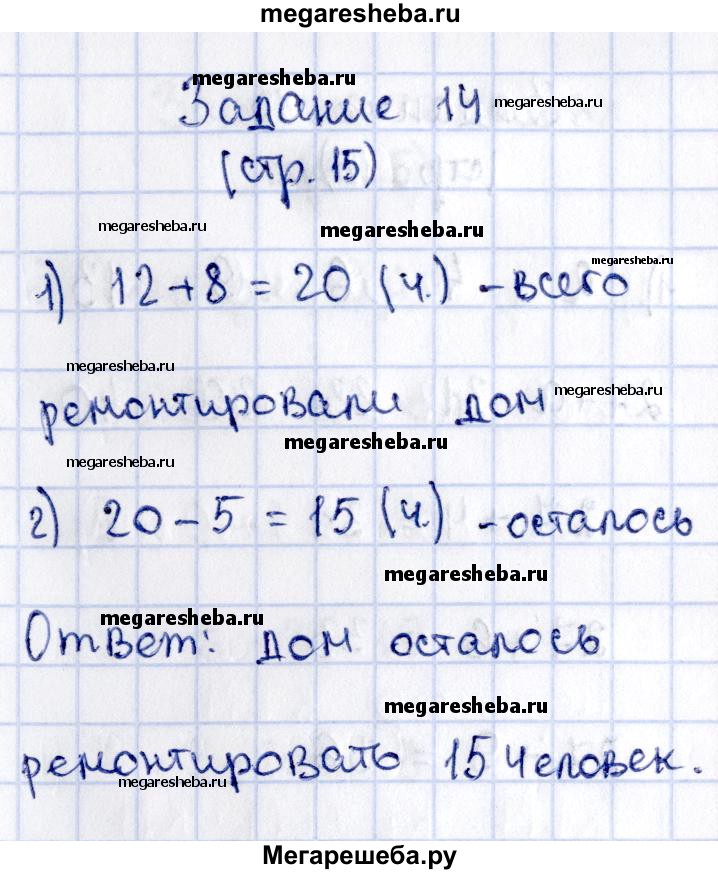 megaresheba.ru
megaresheba.ru
Задание 14 megaresheba.ru
(стр. 15)
megaresheba.ru megaresheba.ru
megaresheba.ru
1) 12+8 = 20 (ч.) - всего
megaresheba.ru
ремонтировали дом megaresheba.ru
megaresheba.ru
megaresheba.ru
2) 20 - 5 = 15 (ч.) - осталось
megaresheba.ru
megaresheba.ru
Ответ: дом осталось
megaresheba.ru
ремонтировать 15 человек.
megaresheba.ru
Мегарешеба.ру